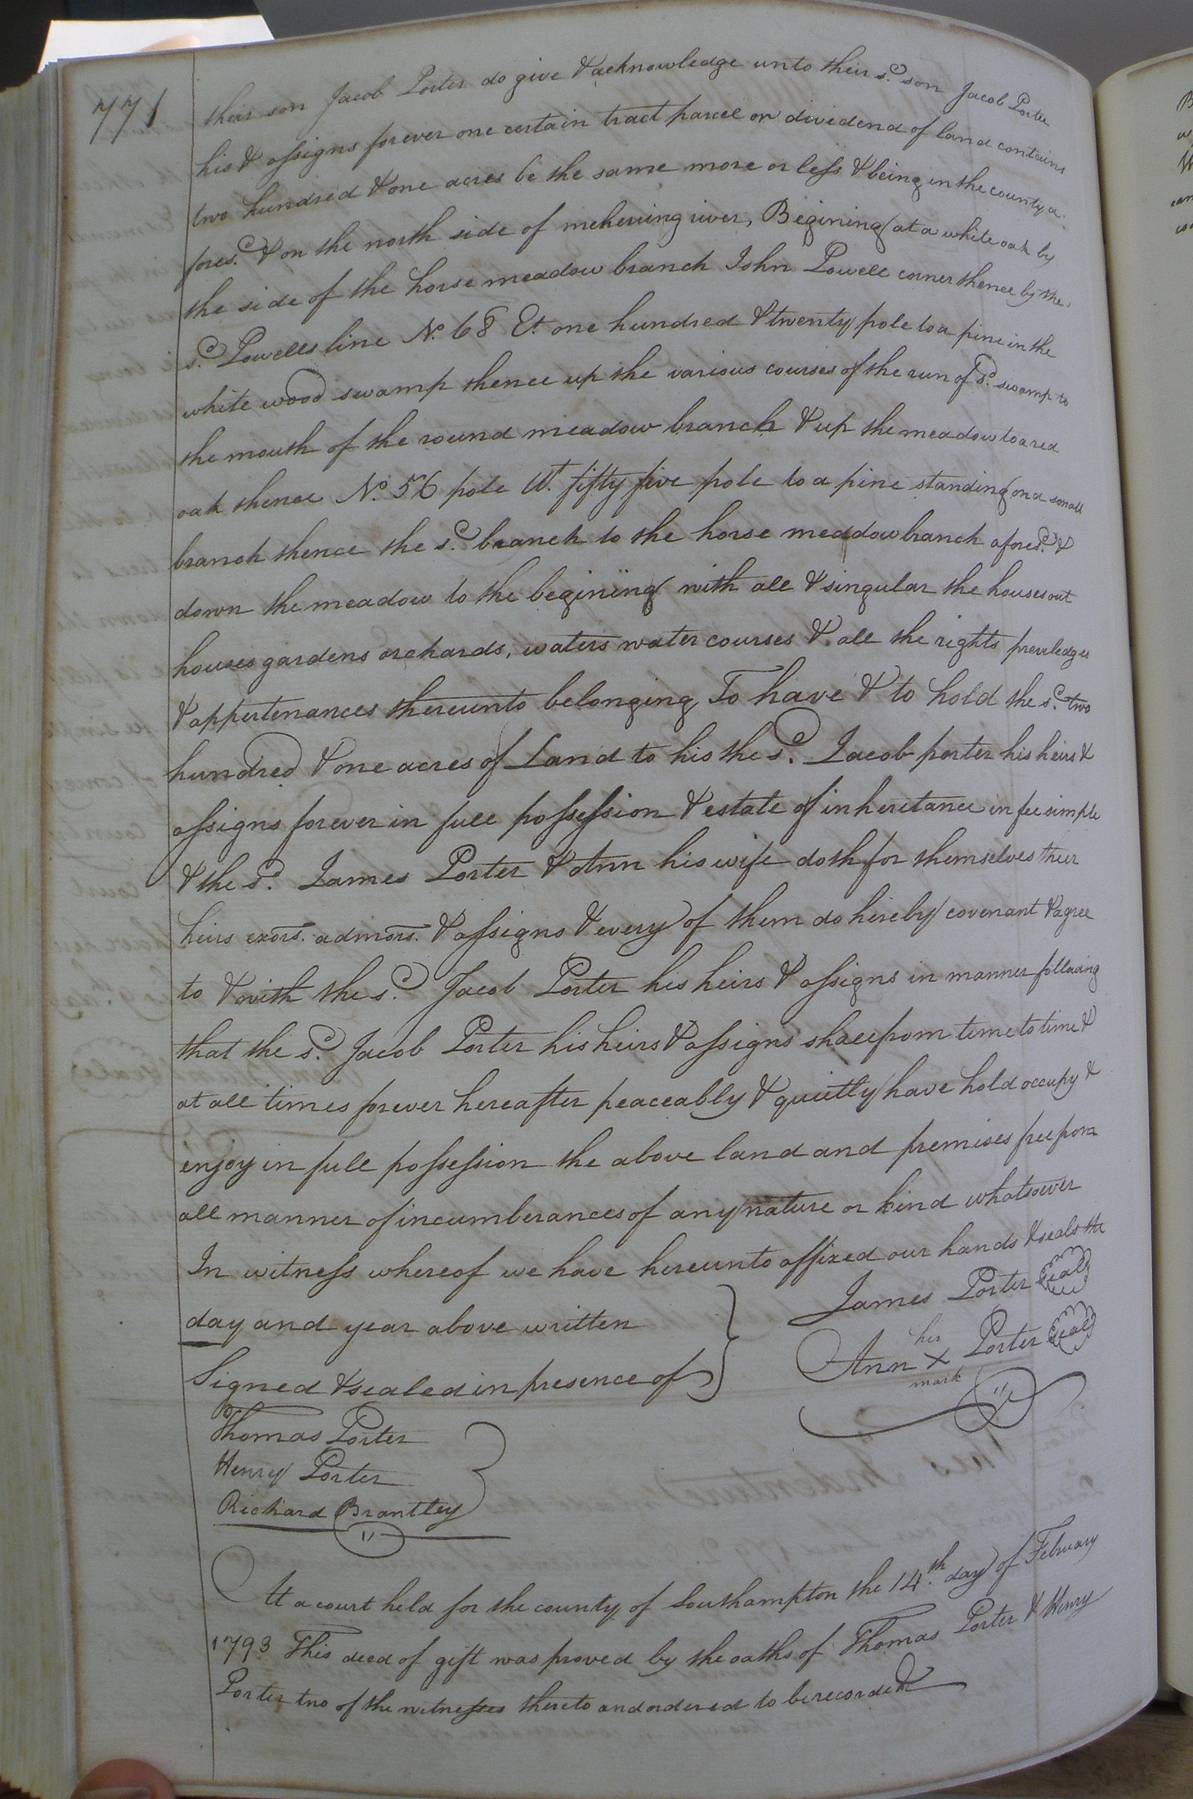 771
their son Jacob Porter do give & acknowledge unto their s.d son Jacob Porter
his & assigns forever one certain tract parcel or dividend of land contains
two hundred & one acres be the same more or less & being in the county a
fores.d & on the north side of meherring river, Begining at a white oak by
the side of the horse meadow branch John Powell corner thence by the
s.d Powells line N.o 68 E.t one hundred & twenty pole to a pine in the
white wood swamp thence up the various courses of the run of s.d swamp to
the mouth of the round meadow branch & up the meadow to a red
oak thence N.o 56 pole W.t fifty five pole to a pine standing on a small
branch thence the s.d branch to the horse meaddow branch afores.d &
down the meadow to the begining with all & singular the houses out
houses gardens orchards, waters water courses & all the rights previledges
& appertenances thereunto belonging To have & to hold the s.d two
hundred & one acres of Land to his the s.d Jacob porter his heirs &
assigns forever in full possession & estate of inheritance in fee simple
& the s.d James Porter & Ann his wife doth for themselves their
heirs exors. admors. & assigns & every of them do hereby covenant & agree
to & with the s.d Jacob Porter his heirs & assigns in manner following
that the s.d Jacob Porter his heirs & assigns shall from time to time &
at all times forever hereafter peaceably & quietly have hold occupy &
enjoy in full possession the above land and premises free from
all manner of incumberances of any nature or kind whatsover
In witness whereof we have hereunto affixed our hands & seals the
day and year above written
Signed & sealed in presence of
James Porter Seal
Ann her X mark Porter Seal
Thomas Porter
Henry Porter
Richard Brantley
At a court held for the county of Southampton the 14.th day of February
1793 This deed of gift was proved by the oaths of Thomas Porter & Henry
Porter two of the witnesses thereto and ordered to be recorded